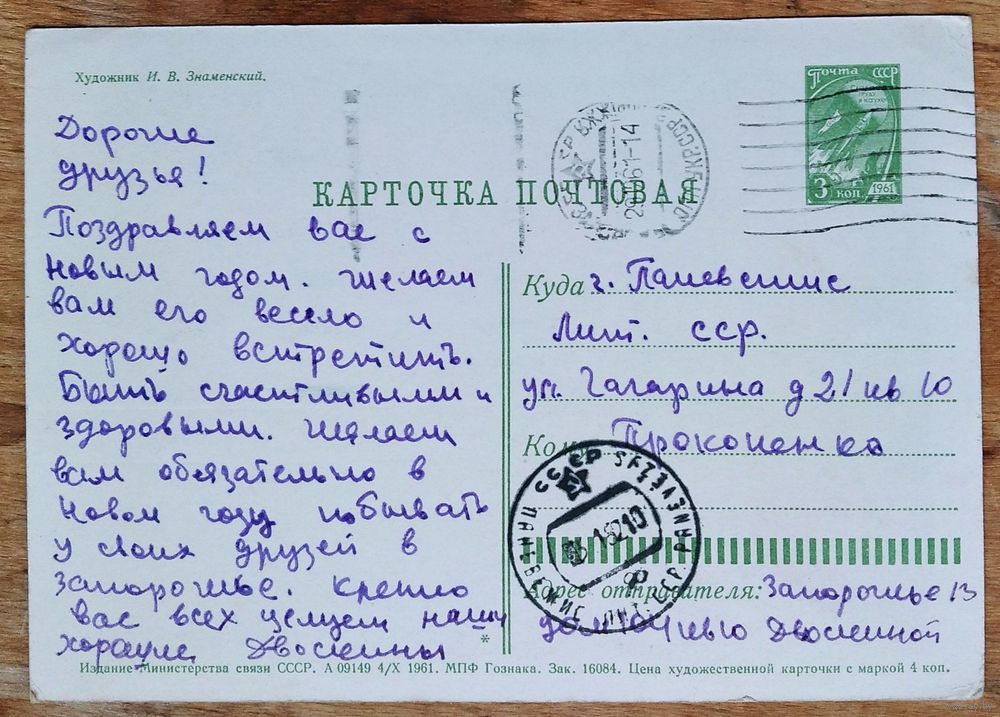 Художник И. В. Знаменский.
Почта СССР
3 коп 1961
КАРТОЧКА ПОЧТОВАЯ
Дорогие
друзья!
Поздравляем вас с
новым годом. Желаем
вам его весело и
хорошо встретить.
Быть счастливыми и
здоровыми. Желаем
вам обязательно в
новом году побывать
у своих друзей в
Запорожье. Крепко
вас всех целуем наши
хорошие
Куда г. Паневежис
Лит. сср.
ул. Гагарина д 21 кв 10
Кому Прокопенко
СССР
PANEVĖŽYS
ПАНЕВЕЖИС
Адрес отправителя: Запорожье 13
Издание Министерства связи СССР. А 09149 4/X 1961. МПФ Гознака. Зак. 16084. Цена художественной карточки с маркой 4 коп.